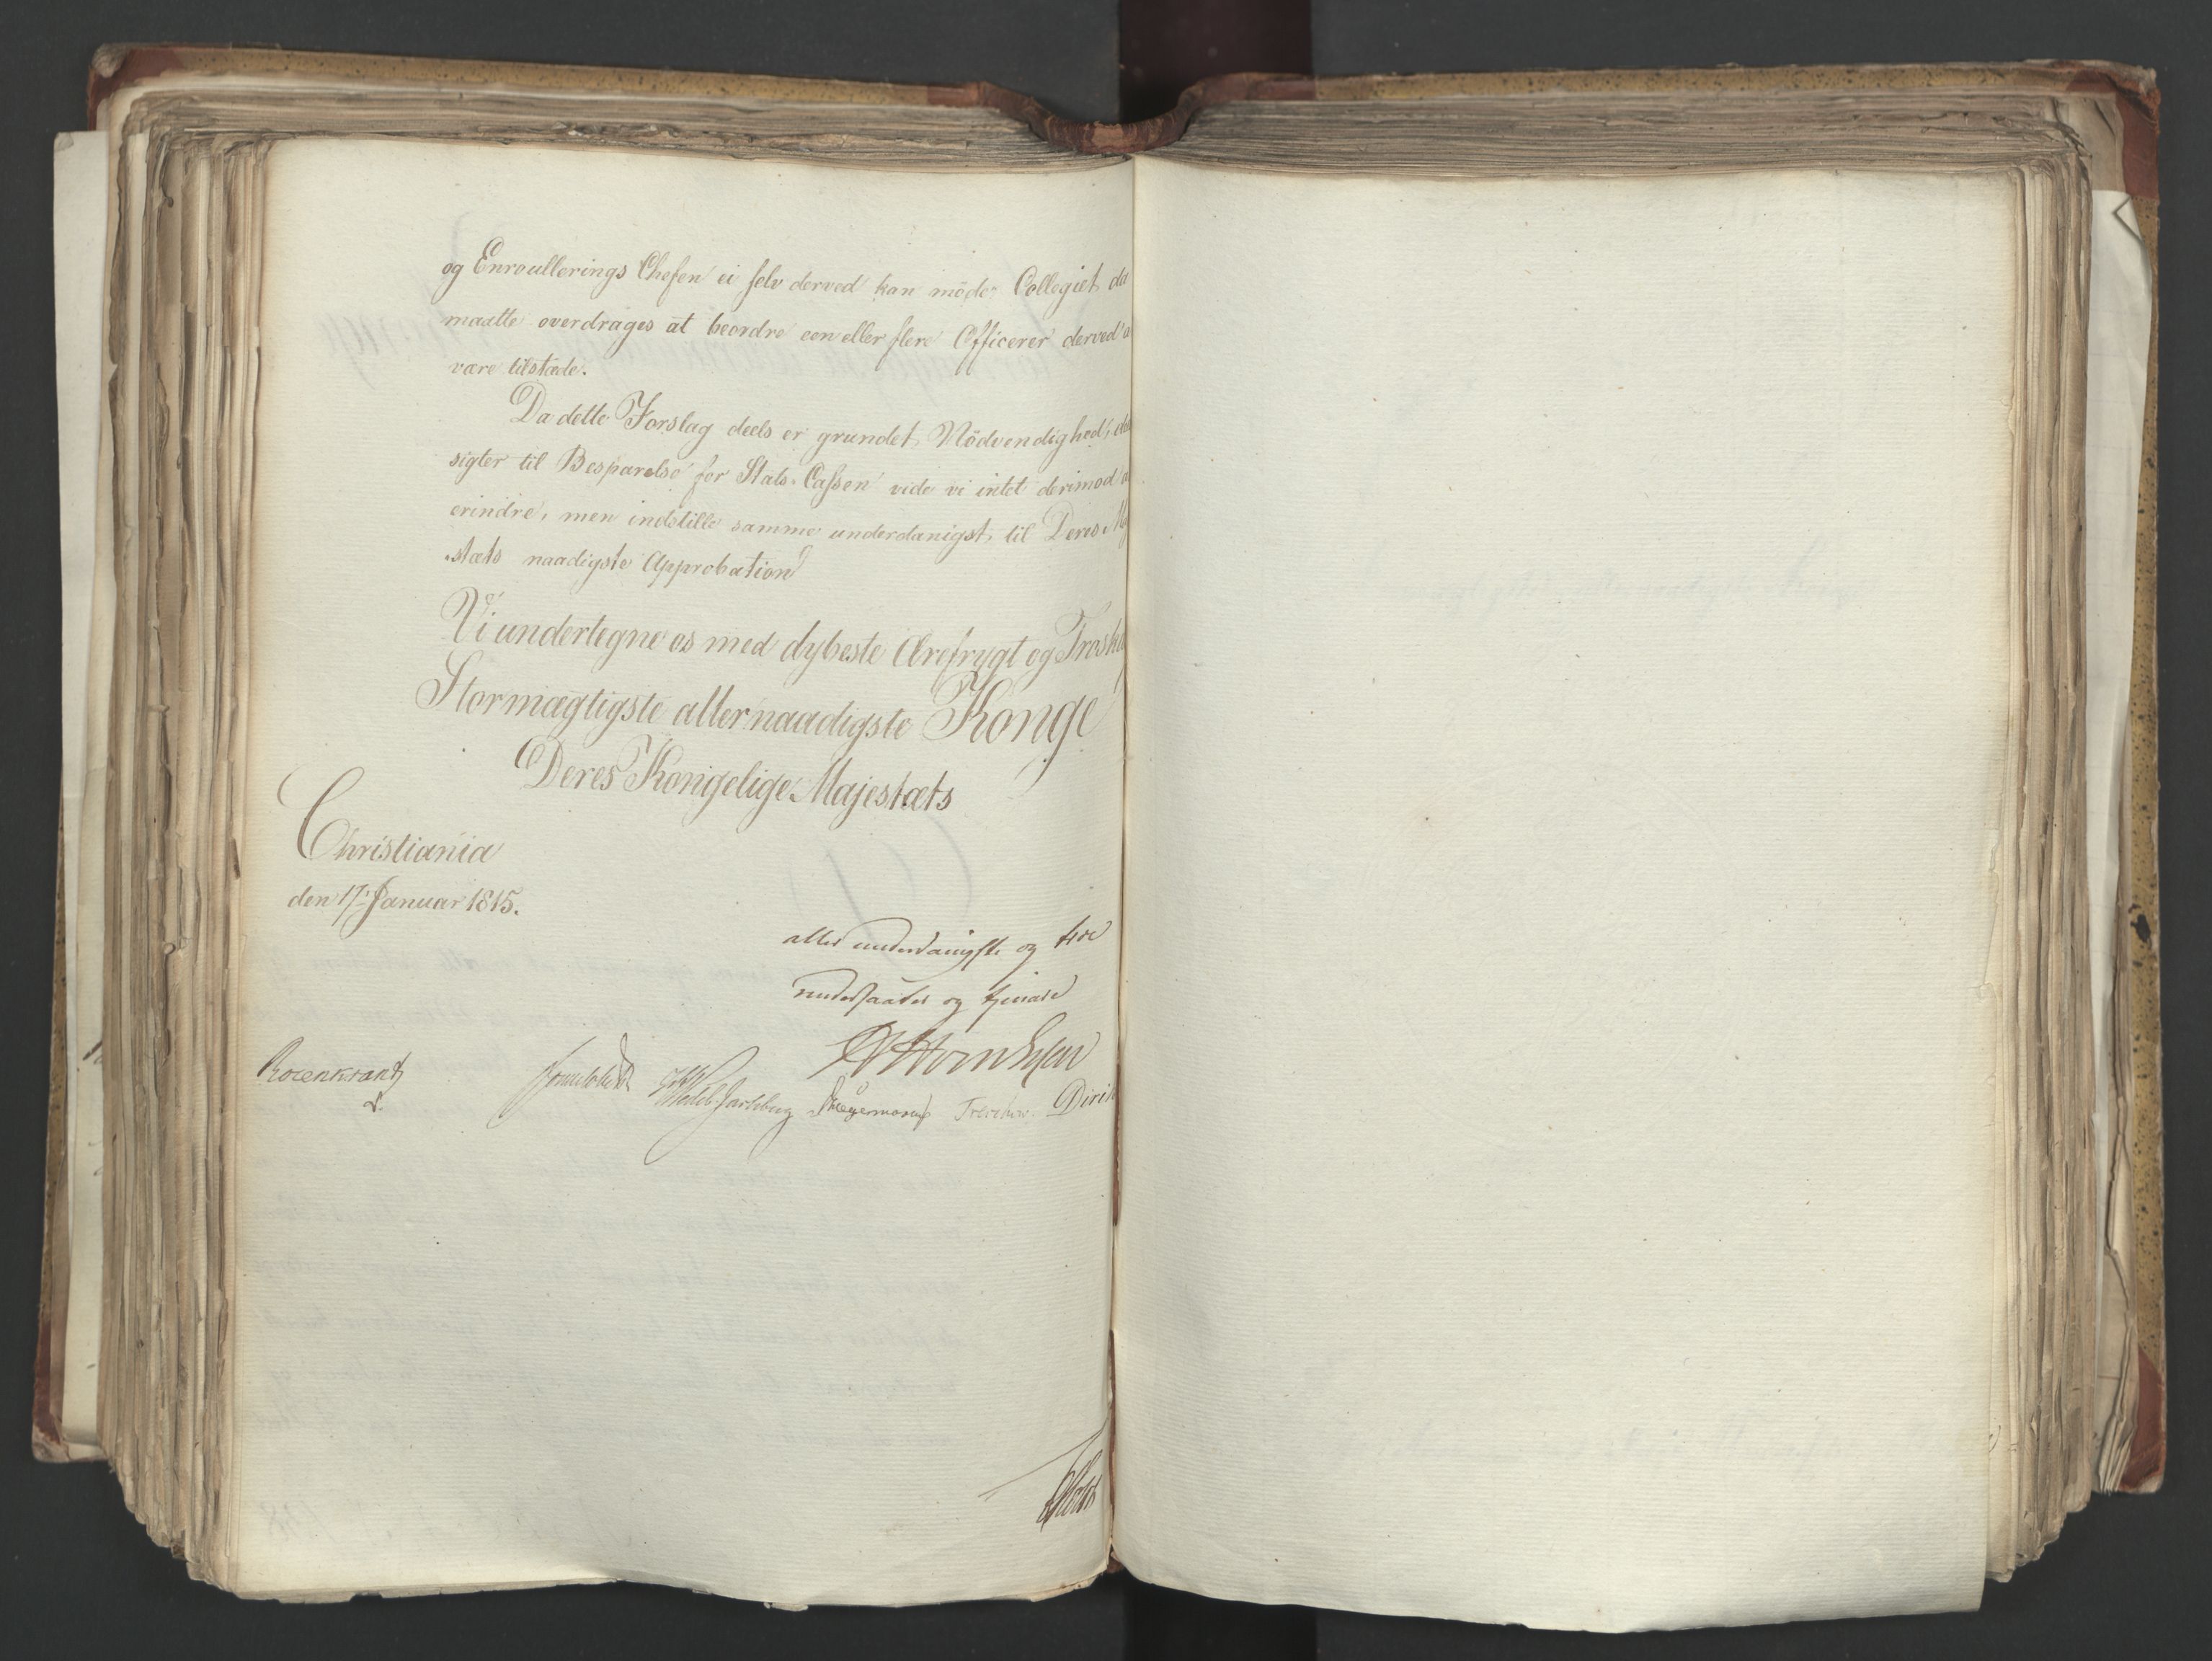 og Enroullerings Chefen ei selv derved kan möde, Collegiet da
maatte overdrages at beordre een eller flere Officerer derved a
være tilstæde.
Da dette Forslag deels er grundet Nödvendighed, dels
sigter til Besparelse for Stats-Cassen vide vi intet derimod a
erindre, men indstille samme underdanigst til Deres Maj
stæts naadigste Approbation
Vi undertegne os med dybeste Ærefrygt og Troska
Stormægtigste allernaadigste Konge
Deres Kongelige Majestæts
Christiania
den 17. Januar 1815.
aller underdanigste og troe
undersaatter og tjenere
Rosenkrantz
Sommerhielm Wedel-Jarlsberg Krogemoes Treschow Dirik